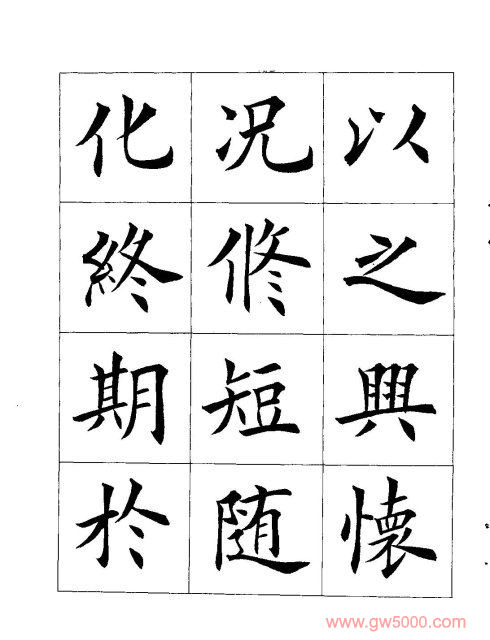 以之興懷
况修短随
化終期於
www.gw5000.com